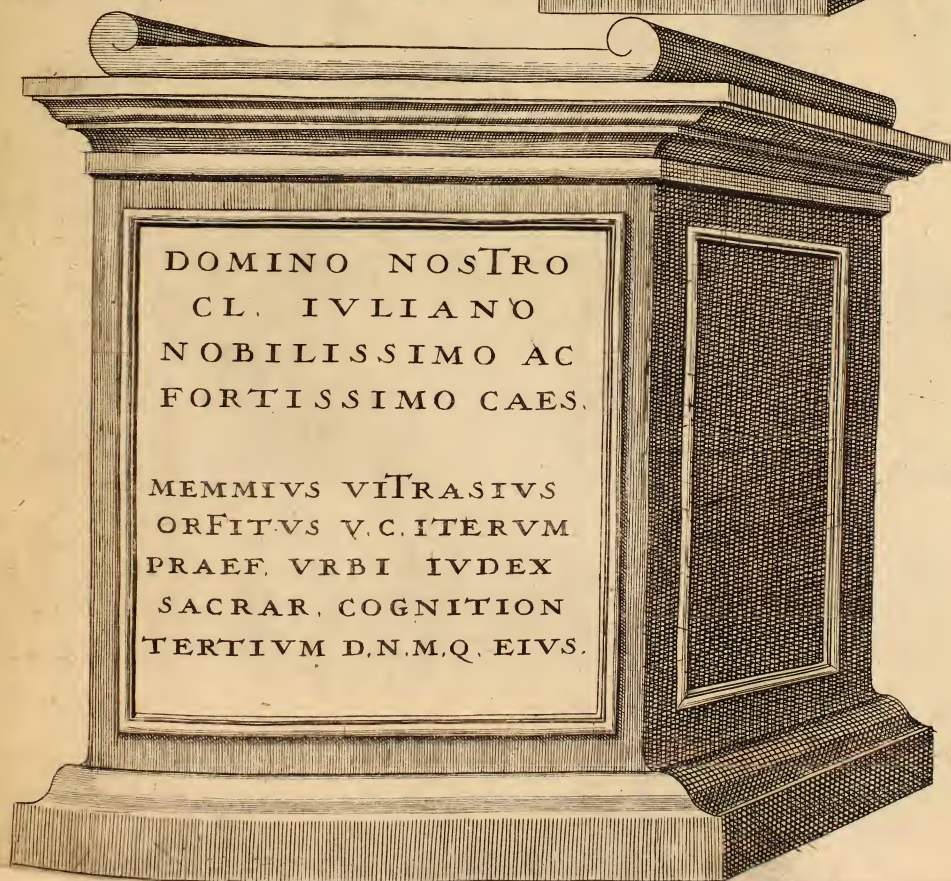 DOMINO NOSTRO
CL. IVLIANO
NOBILISSIMO AC
FORTISSIMO CAES.
MEMMIVS VITRASIVS
ORFITVS V.C. ITERVM
PRAEF. VRBI IVDEX
SACRAR. COGNITION
TERTIVM D.N.M.Q. EIVS.